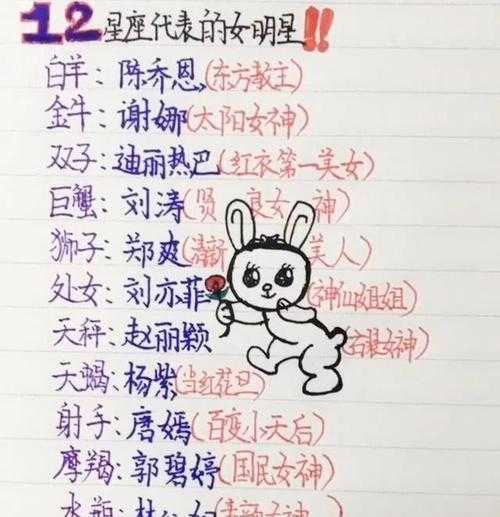 12星座代表的女明星!!
白羊:陈乔恩(东方教主)
金牛:谢娜(太阳女神)
双子:迪丽热巴(红衣第一美女)
巨蟹:刘涛(贤良女神)
狮子:郑爽(清新美人)
处女:刘亦菲(神仙姐姐)
天秤:赵丽颖(古装女神)
天蝎:杨紫(当红花旦)
射手:唐嫣(百变小天后)
摩羯:郭碧婷(国民女神)
水瓶: